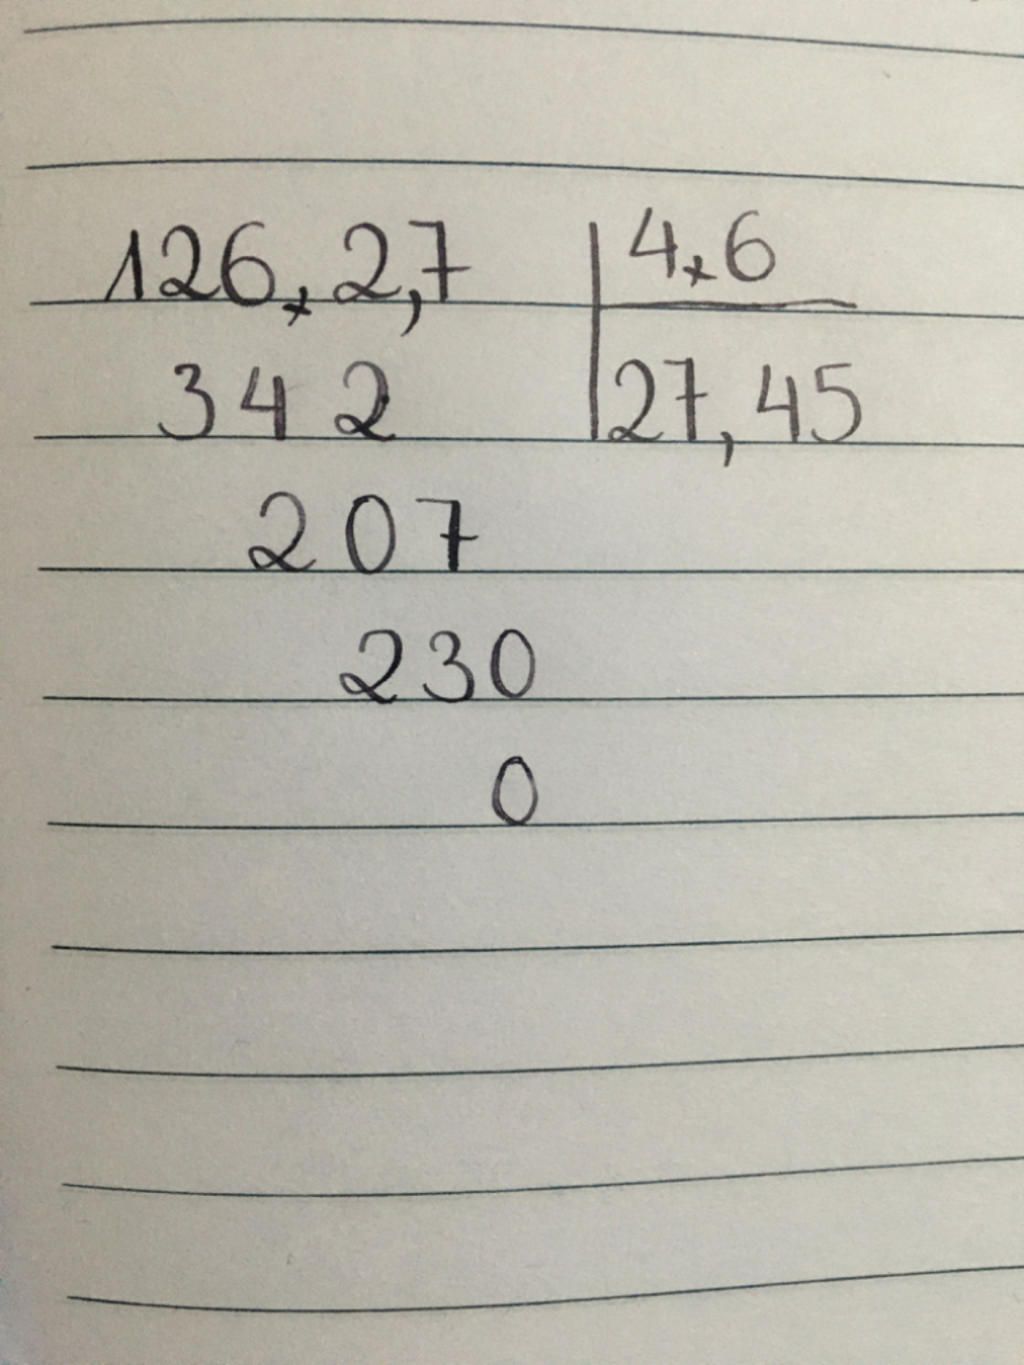 126,2,7 4,6
342 27,45
207
230
0